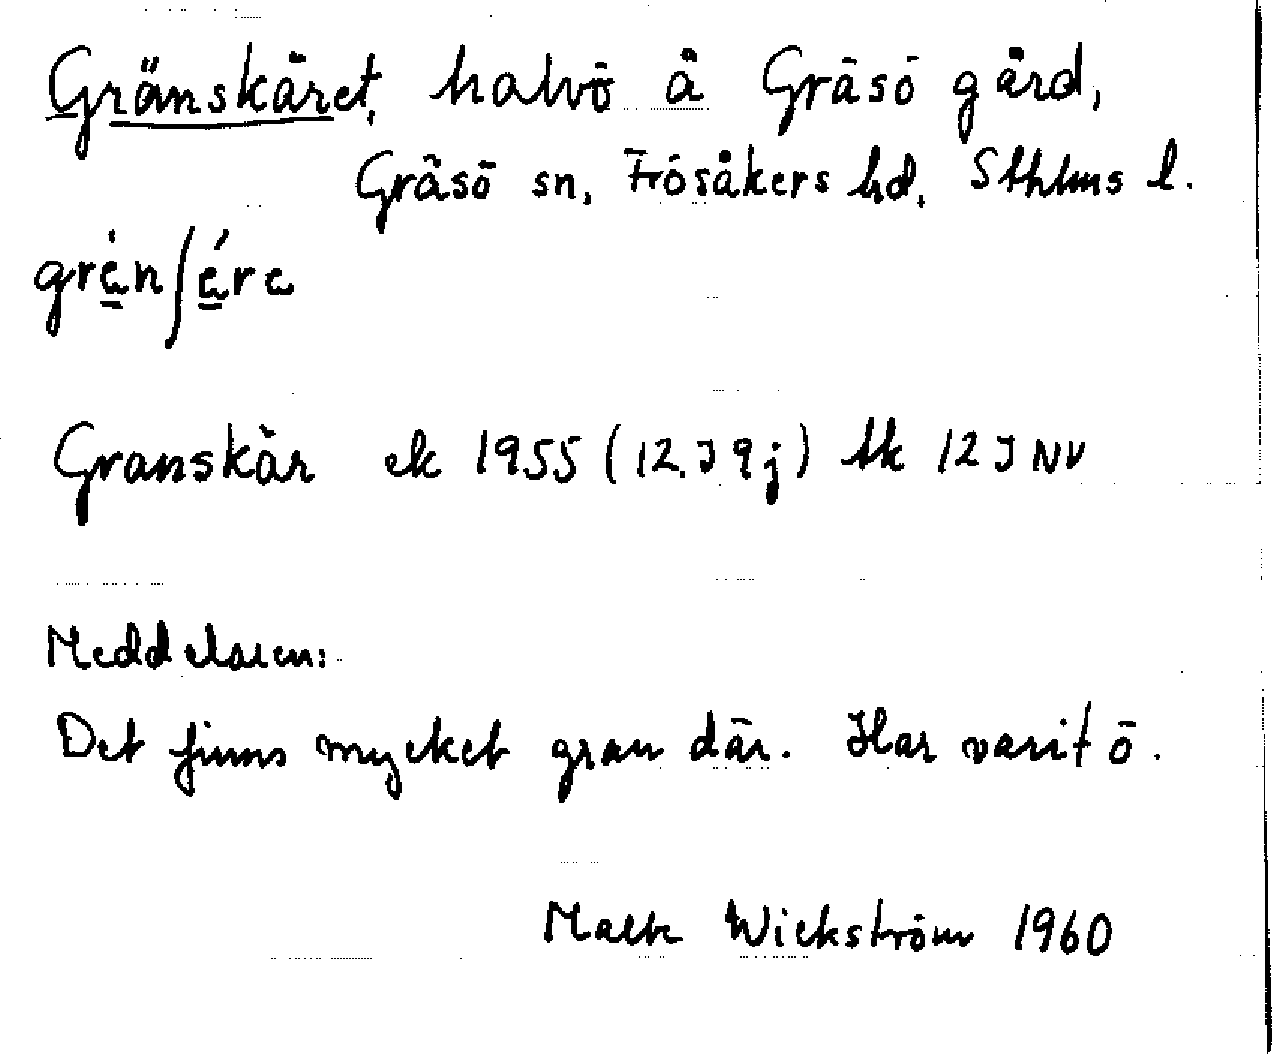 Gränskäret, halvö å Gräsö gård,
Gräsö sn, Frösåkers hd, Sthlms l.
grä̀nʃä́re
Granskär ek 1955 (12.I 9j) tk 12 I NV
Meddelaren:
Det finns mycket gran där. Har varit ö.
Wickström 1960